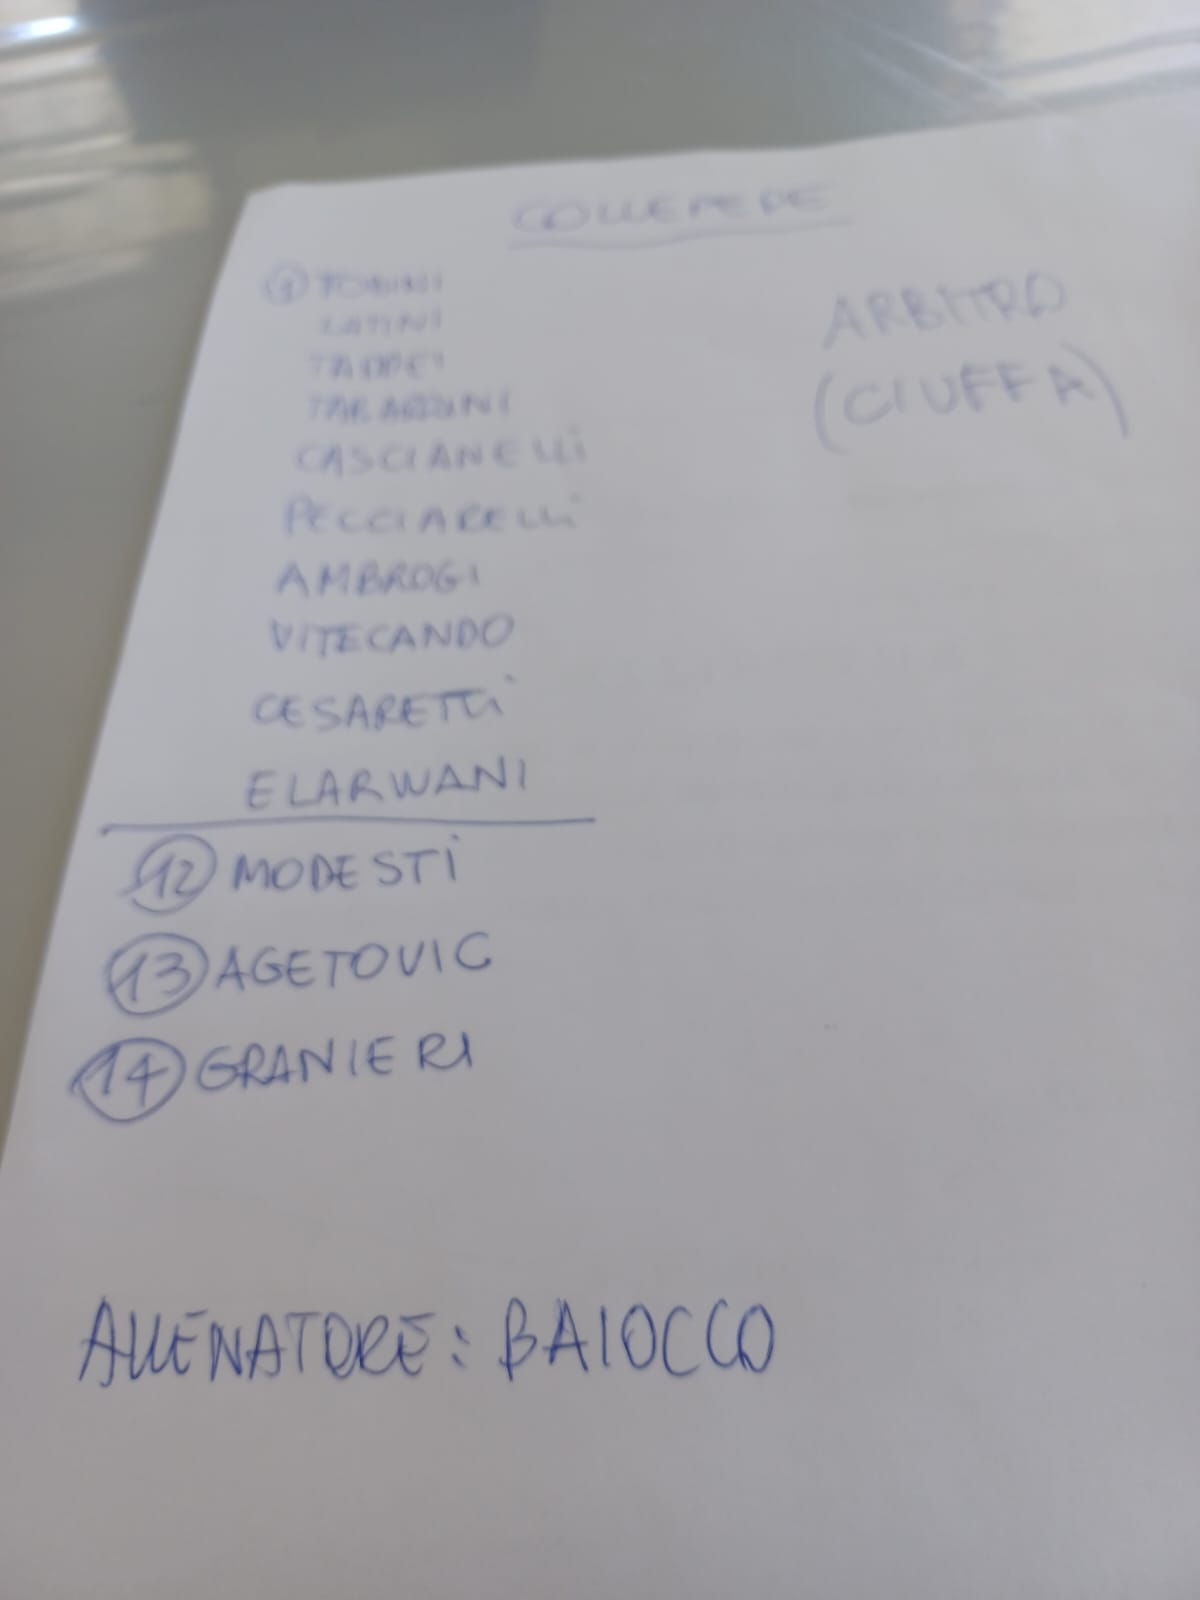 COLLEPEPE
ARBITRO
(CIUFFA)
1 TOBINI
LATINI
TADDEI
CASCIANELLI
PECCIARELLI
AMBROGI
VITECANDO
CESARETTI
ELARWANI
12 MODESTI
13 AGETOVIC
14 GRANIERI
ALLENATORE: BAIOCCO